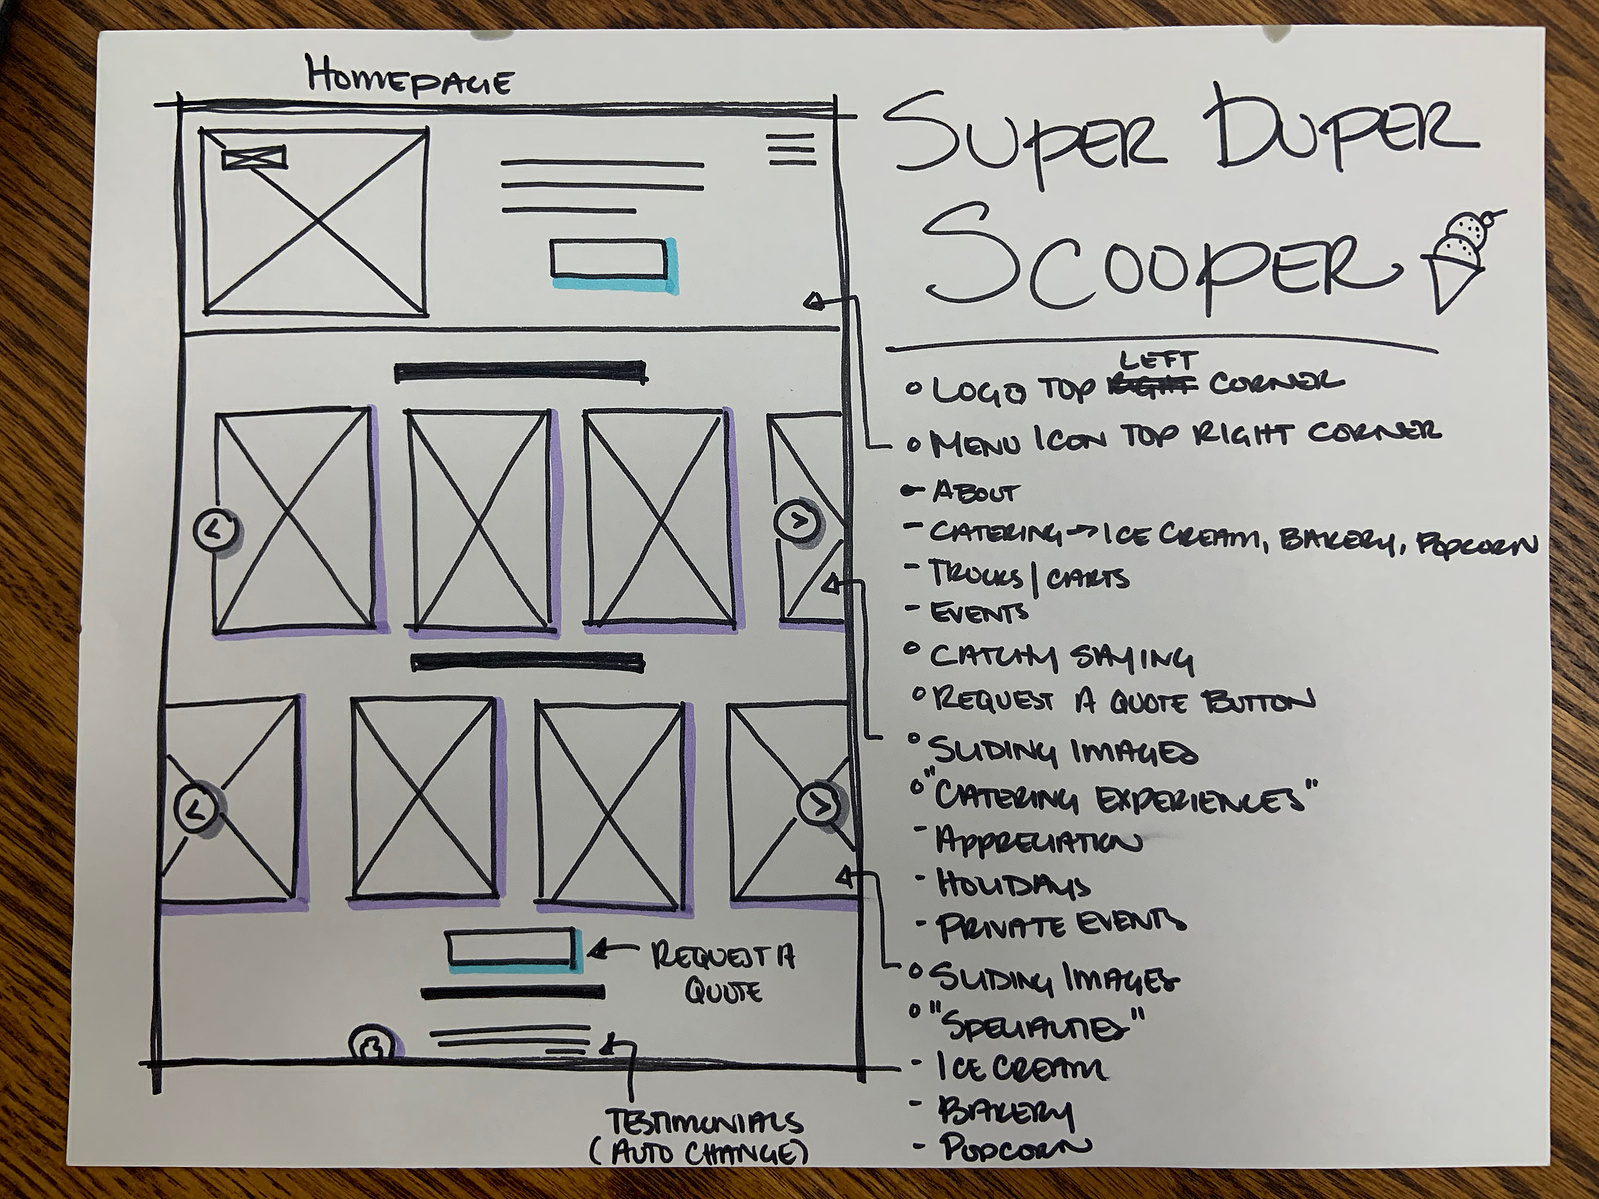 HOMEPAGE
SUPER DUPER
SCOOPER
LEFT
o LOGO TOP RIGHT CORNER
o MENU ICON TOP RIGHT CORNER
- ABOUT
- CATERING → ICE CREAM, BAKERY, POPCORN
- TRUCKS / CARTS
- EVENTS
o CATCHY SAYING
o REQUEST A QUOTE BUTTON
o SLIDING IMAGES
o "CATERING EXPERIENCES"
- APPRECIATION
- HOLIDAYS
- PRIVATE EVENTS
o SLIDING IMAGES
o "SPECIALTIES"
- ICE CREAM
- BAKERY
- POPCORN
<
>
<
>
REQUEST A
QUOTE
TESTIMONIALS
(AUTO CHANGE)